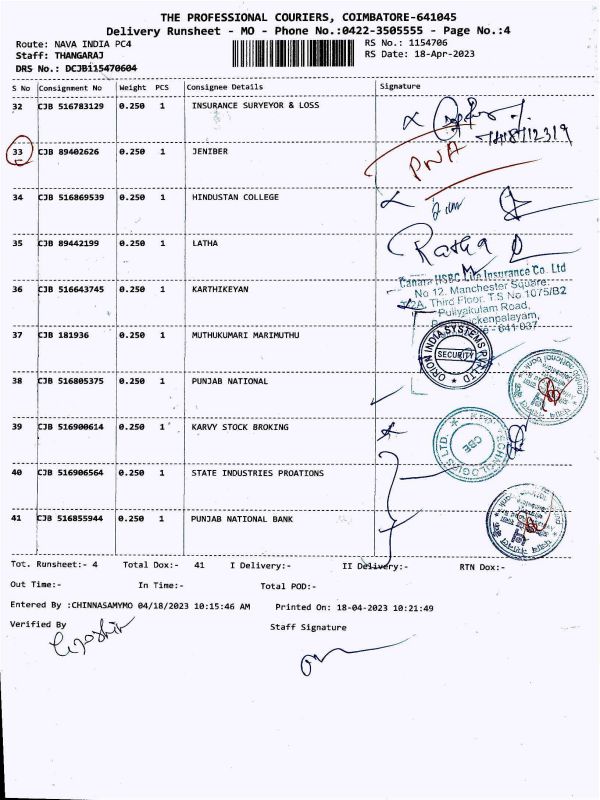 THE PROFESSIONAL COURIERS, COIMBATORE-641045
Delivery Runsheet - MO - Phone No.:0422-3505555 - Page No.:4
Route: NAVA INDIA PC4 RS No.: 1154706
Staff: THANGARAJ RS Date: 18-Apr-2023
DRS No.: DCJB115470604
S No Consignment No Weight PCS Consignee Details Signature
32 CJB 516783129 0.250 1 INSURANCE SURYEYOR & LOSS
33 CJB 89402626 0.250 1 JENIBER PNA
34 CJB 516869539 0.250 1 HINDUSTAN COLLEGE
35 CJB 89442199 0.250 1 LATHA Ratha
Canara HSBC Life Insurance Co. Ltd
36 CJB 516643745 0.250 1 KARTHIKEYAN No 12, Manchester Square,
Third Floor, T.S No 1075/B2
Puliyakulam Road,
37 CJB 181936 0.250 1 MUTHUKUMARI MARIMUTHU 641 037
ORION INDIA SYSTEMS PVT LTD
SECURITY
38 CJB 516805375 0.250 1 PUNJAB NATIONAL
39 CJB 516900614 0.250 1 KARVY STOCK BROKING
TECHNOLOGIES LTD.
CBE
40 CJB 516906564 0.250 1 STATE INDUSTRIES PROATIONS
41 CJB 516855944 0.250 1 PUNJAB NATIONAL BANK
Tot. Runsheet:- 4 Total Dox:- 41 I Delivery:- II Delivery:- RTN Dox:-
Out Time:- In Time:- Total POD:-
Entered By :CHINNASAMYMO 04/18/2023 10:15:46 AM Printed On: 18-04-2023 10:21:49
Verified By Staff Signature